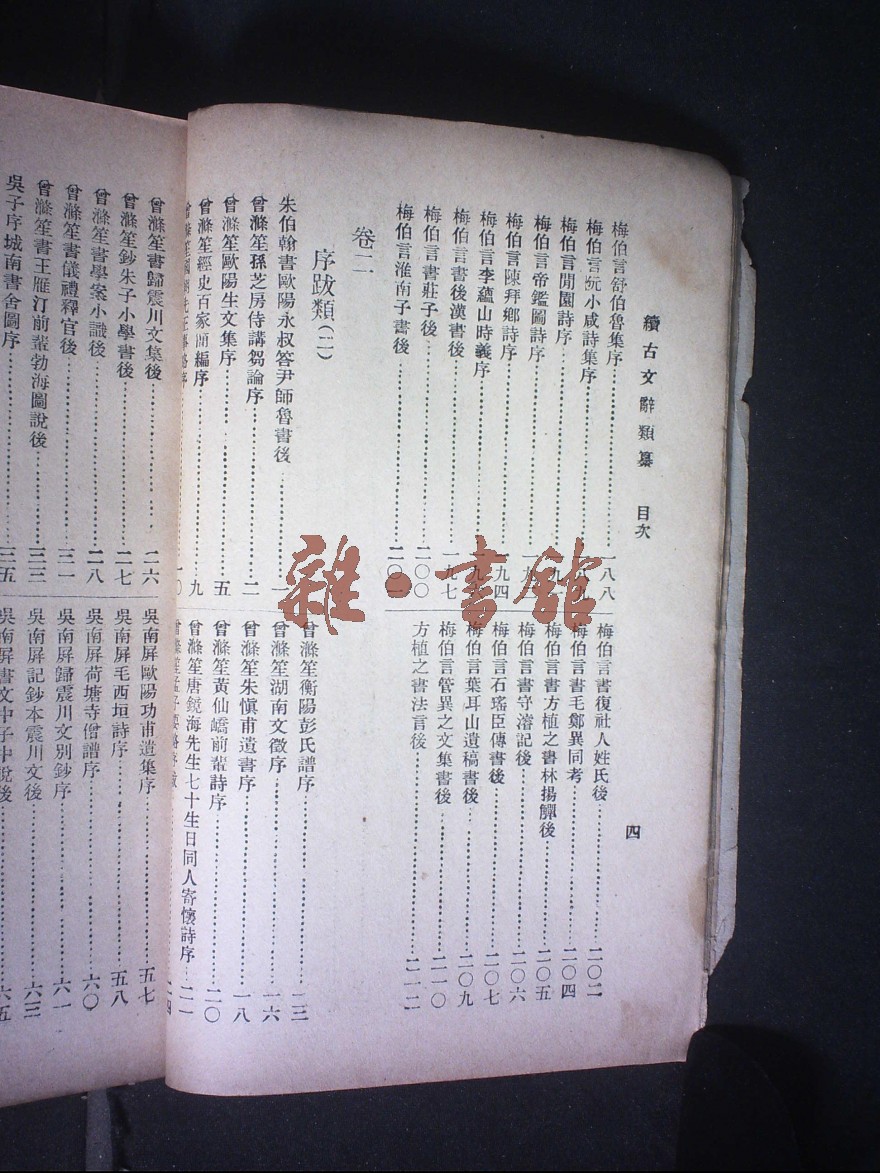 續古文辭類纂 目次
四
梅伯言舒伯魯集序 一八八
梅伯言阮小咸詩集序
梅伯言閒園詩序
梅伯言帝鑑圖詩序
梅伯言陳拜鄉詩序 一九四
梅伯言李蘊山時義序
梅伯言書後漢書後 一九七
梅伯言書莊子後 二〇〇
梅伯言淮南子書後
梅伯言書復社人姓氏後 二〇二
梅伯言書毛鄭異同考 二〇四
梅伯言書方植之書林揚觶後 二〇五
梅伯言書守濬記後 二〇六
梅伯言石瑤臣傳書後 二〇七
梅伯言葉耳山遺稿書後 二〇九
梅伯言管異之文集書後 二一〇
方植之書法言後 二一二
卷二
序跋類(二)
朱伯翰書歐陽永叔答尹師魯書後 一
曾滌笙孫芝房侍講芻論序 二
曾滌笙歐陽生文集序 五
曾滌笙經史百家簡編序 九
一〇
曾滌笙衡陽彭氏譜序 一三
曾滌笙湖南文徵序 一六
曾滌笙朱愼甫遺書序 一八
曾滌笙黃仙嶠前輩詩序 二〇
曾滌笙唐鏡海先生七十生日同人寄懷詩序 二一
曾滌笙孟子要略 二四
曾滌笙書歸震川文集後 二六
曾滌笙鈔朱子小學書後 二七
曾滌笙書學案小識後 二八
曾滌笙書儀禮釋官後 三一
曾滌笙書王雁汀前輩勃海圖說後 三三
吳子序城南書舍圖序 三五
吳南屏歐陽功甫遺集序 五七
吳南屏毛西垣詩序 五八
吳南屏荷塘寺僧譜序 六〇
吳南屏歸震川文別鈔序 六一
吳南屏記鈔本震川文後 六三
吳南屏書文中子中說後 六五
雜·書館